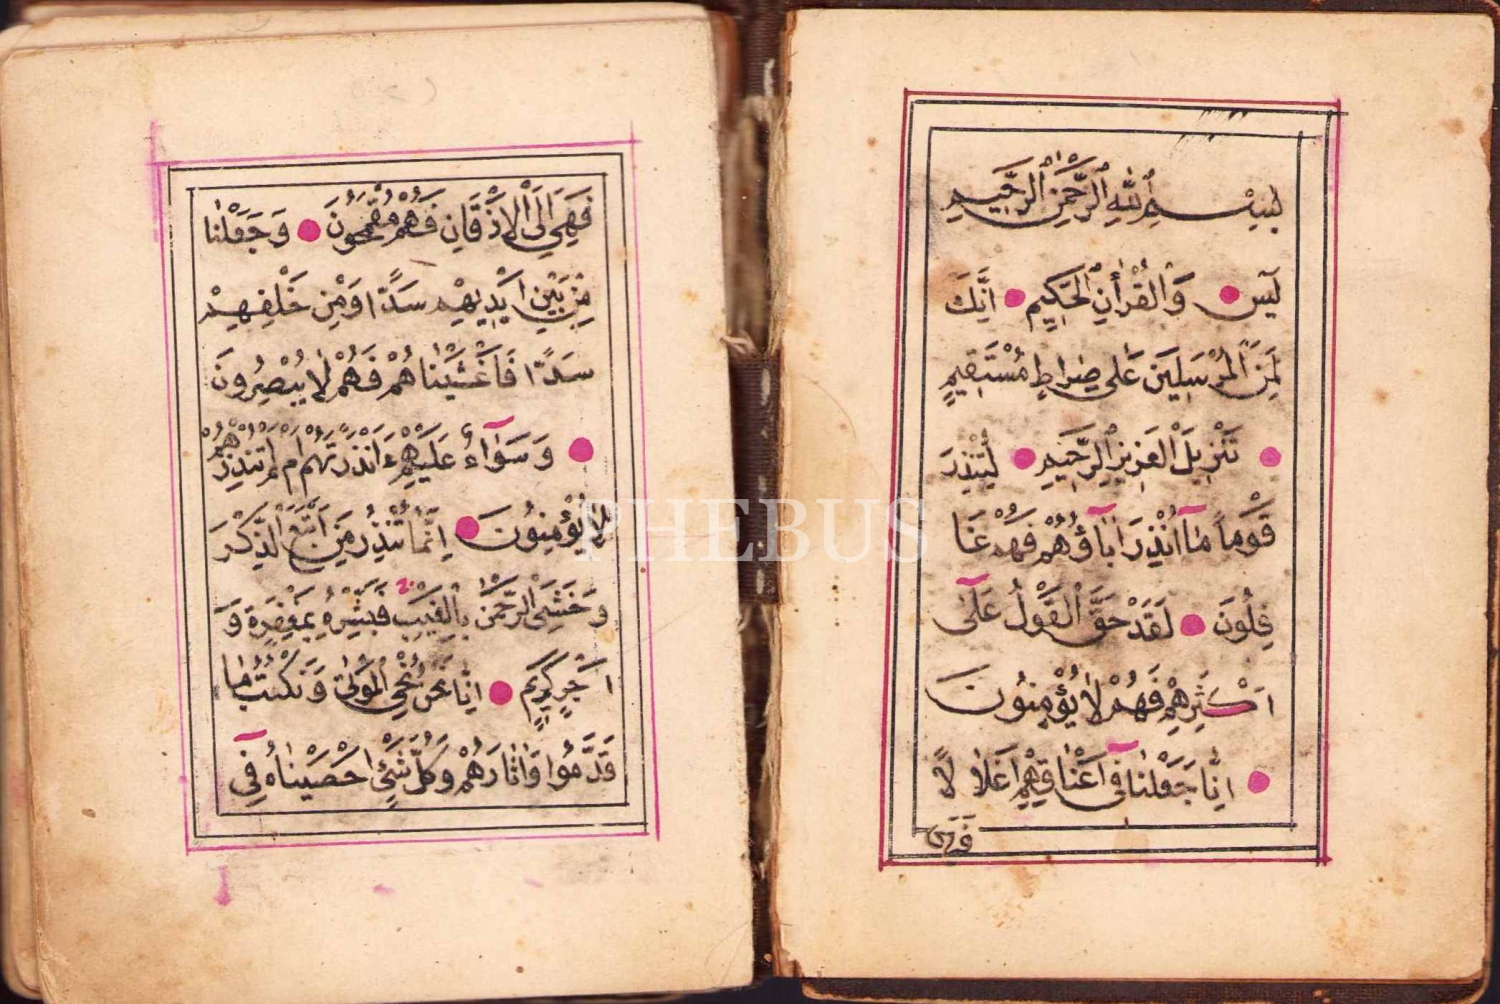 بِسْمِ اللّٰهِ الرَّحْمٰنِ الرَّحِيمِ
يٰسٓ وَالْقُرْأٰنِ الْحَكِيمِ اِنَّكَ
لَمِنَ الْمُرْسَلِينَ عَلٰى صِرَاطٍ مُسْتَقِيمٍ
تَنْزِيلَ الْعَزِيزِ الرَّحِيمِ لِتُنْذِرَ
قَوْمًا مَٓا اُنْذِرَ اٰبَٓاؤُهُمْ فَهُمْ غَا
فِلُونَ لَقَدْ حَقَّ الْقَوْلُ عَلٰٓى
اَكْثَرِهِمْ فَهُمْ لَا يُؤْمِنُونَ
اِنَّا جَعَلْنَا فٖٓى اَعْنَاقِهِمْ اَغْلَا لًا
فَهِىَ
فَهِيَ اِلَى الْاَذْقَانِ فَهُمْ مُقْمَحُونَ وَجَعَلْنَا
مِنْ بَيْنِ اَيْدِيهِمْ سَدًّا وَمِنْ خَلْفِهِمْ
سَدًّا فَاَغْشَيْنَاهُمْ فَهُمْ لَا يُبْصِرُونَ
وَسَوَٓاءٌ عَلَيْهِمْ ءَاَنْذَرْتَهُمْ اَمْ لَمْ تُنْذِرْهُمْ
لَا يُؤْمِنُونَ اِنَّمَا تُنْذِرُ مَنِ اتَّبَعَ الذِّكْرَ
وَخَشِيَ الرَّحْمٰنَ بِالْغَيْبِ فَبَشِّرْهُ بِمَغْفِرَةٍ وَ
اَجْرٍ كَرِيمٍ اِنَّا نَحْنُ نُحْيِ الْمَوْتٰى وَنَكْتُبُ مَا
قَدَّمُوا وَاٰثَارَهُمْ وَكُلَّ شَيْءٍ اَحْصَيْنَاهُ فِٓي
PHEBUS